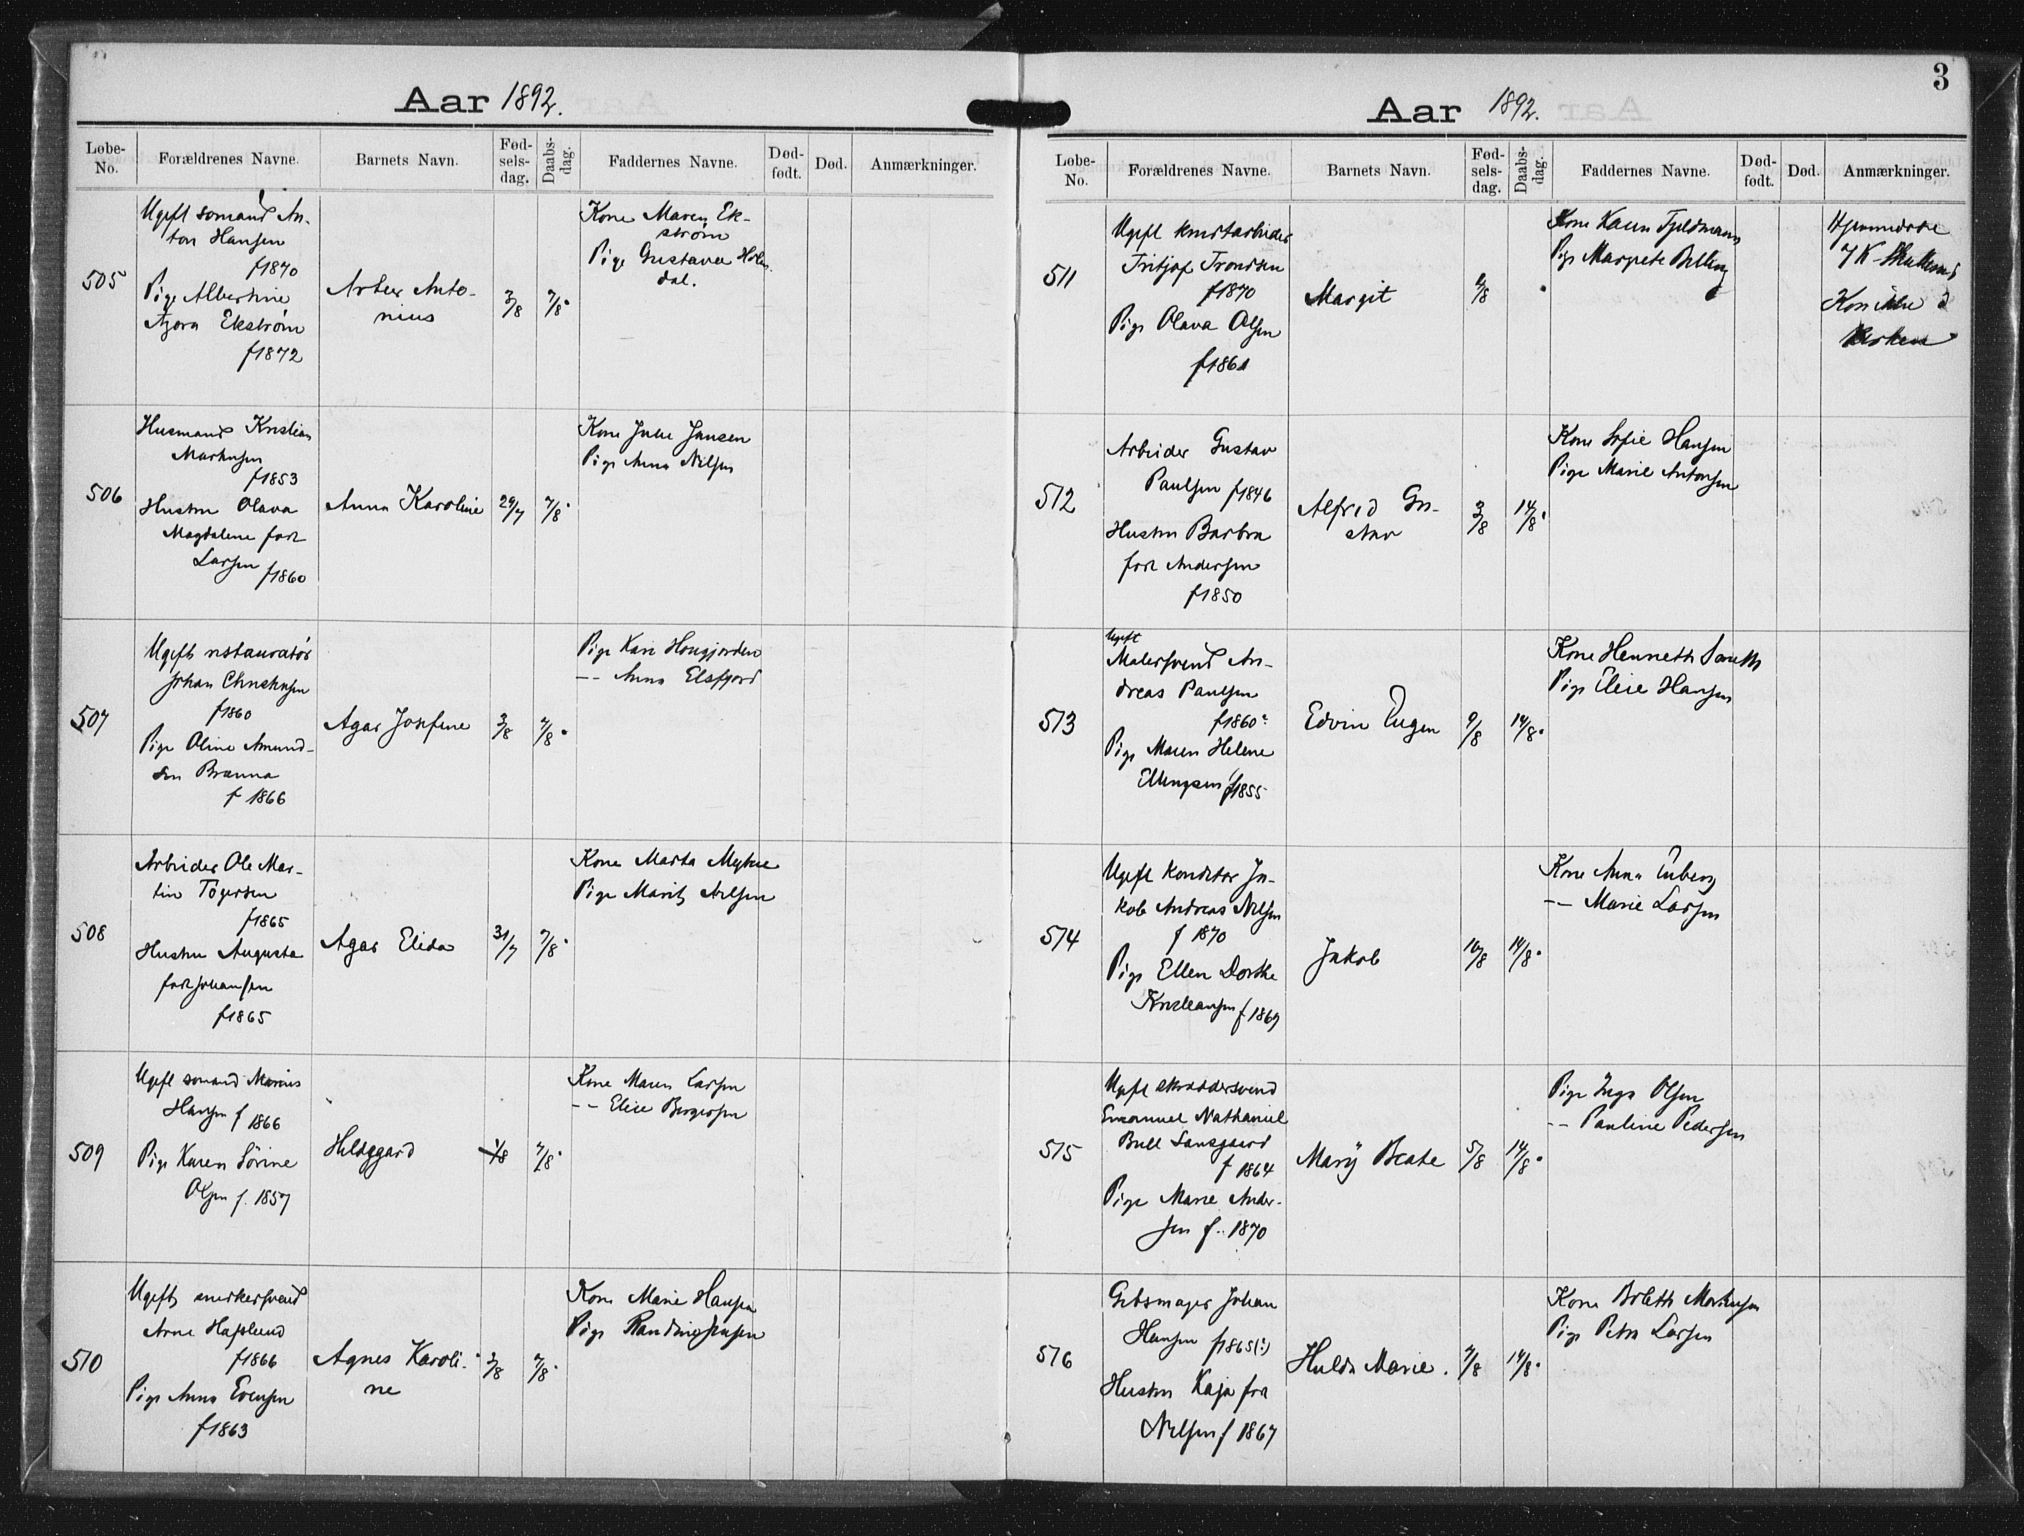 Aar 1892.
Løbe-
No.
Forældrenes Navne.
Barnets Navn.
Fød-
sels-
dag.
Daabs-
dag.
Faddernes Navne.
Død-
født.
Død.
Anmærkninger.
505
Ugift sømand An-
ton Hansen
f1870
Pige Albertine
Ekstrøm
f1872
Anto-
nius
3/8
7/8
Kone Maren Ek-
strøm
Pige Gustava Holm
dal.
506
Husmand Kristian
Markusen
f1853
Hustru Olava
Magdalene født
Larsen f1860
Anna Karoline
29/7
7/8
Kone Julie Jansen
Pige Anna Nilsen
507
Ugift restauratør
Johan Christensen
f1860
Pige Oline Amund-
sen Brænna
f 1866
Agar Josefine
3/8
7/8
Pige Kari Hougjorden
-- Anna Elsfjord
508
Arbeider Ole Mar-
tin Tøgersen
f1865
Hustru Augusta
født Johansen
f1865
Agar Elida
31/7
7/8
Kone Marta
Pige Marit Nilsen
509
Ugift sømand Marius
Hansen f 1866
Pige Karen Sørine
Olsen f. 1857
Hildeggard
1/8
7/8
Kone Maren Larsen
-- Elise Bergersen
510
Ugift snekersvend
Arne Hafslund
f1866
Pige Anna Evensen
f1863
Agnes Karoli-
ne
3/8
7/8
Kone Marie Hansen
Pige Randi
3
Aar 1892.
Løbe-
No.
Forældrenes Navne.
Barnets Navn.
Fød-
sels-
dag.
Daabs-
dag.
Faddernes Navne.
Død-
født.
Død.
Anmærkninger.
511
Ugift
Fritjof Trondsen
f1870
Pige Olava Olsen
Margit
Kone Karen Fjeldmann
Pige Margrete Belling
Hjemmedøbt
7 K
512
Arbeider Gustav
Paulsen f1846
Hustru Barbra
født Andersen
f1850
Alfred Gu-
stav
3/8
14/8
Kone Sofie Hansen
Pige Marie Antonsen
513
Ugift
Malersvend An-
dreas Paulsen
f1860
Pige Maren Helene
Ellingsen f1855
Edvin Eugen
9/8
14/8
Kone Henriette
Pige Elise Hansen
514
Ugift konditor Ja-
kob Andreas Nilsen
f 1870
Pige Ellen Dorthe
Kristiansen f 1869
Jakob
10/8
14/8
Kone Anna Enberg
-- Marie Larsen
515
Ugift skræddersvend
Emanuel Nathaniel
Bull Sansgaard
f 1864
Pige Marie Ander-
sen f. 1870
Marÿ Beate
5/8
14/8
Pige Inga Olsen
-- Pauline Pedersen
516
Gibsmager Johan
Hansen f1865(?)
Hustru Kaja fra
Nilsen f 1867
Hulda Marie.
7/8
14/8
Kone Bolette Markusen
Pige Petra Larsen